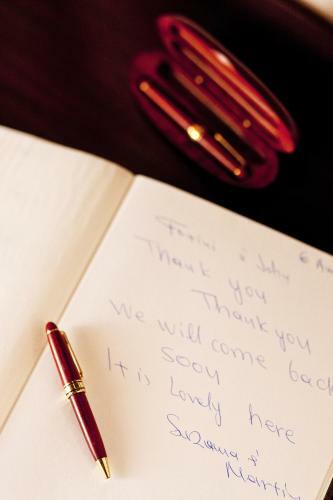 & John 6 Au
Thank you
Thank you
We will come back
soon
It is Lovely here
Suzana &
Martin